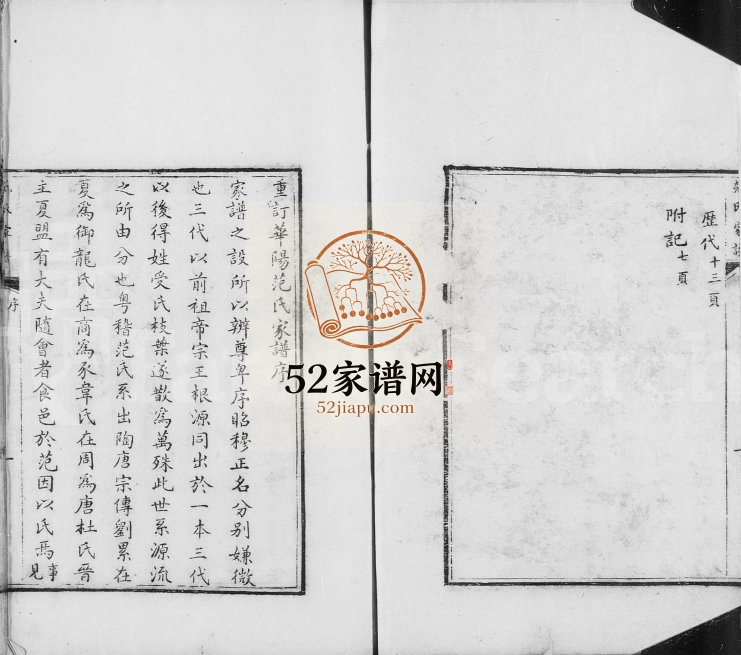 歷代十三頁
附記七頁
重訂華陽范氏家譜序
家譜之設所以辨尊卑序昭穆正名分別嫌微
也三代以前祖帝宗王根源同出於一本三代
以後得姓受氏枝葉遂散為萬殊此世系源流
之所由分也粤稽范氏系出陶唐宗傳劉累在
夏為御龍氏在商為豕韋氏在周為唐杜氏晉
主夏盟有大夫隨會者食邑於范因以氏焉事見
序
一
52家谱网
52jiapu.com